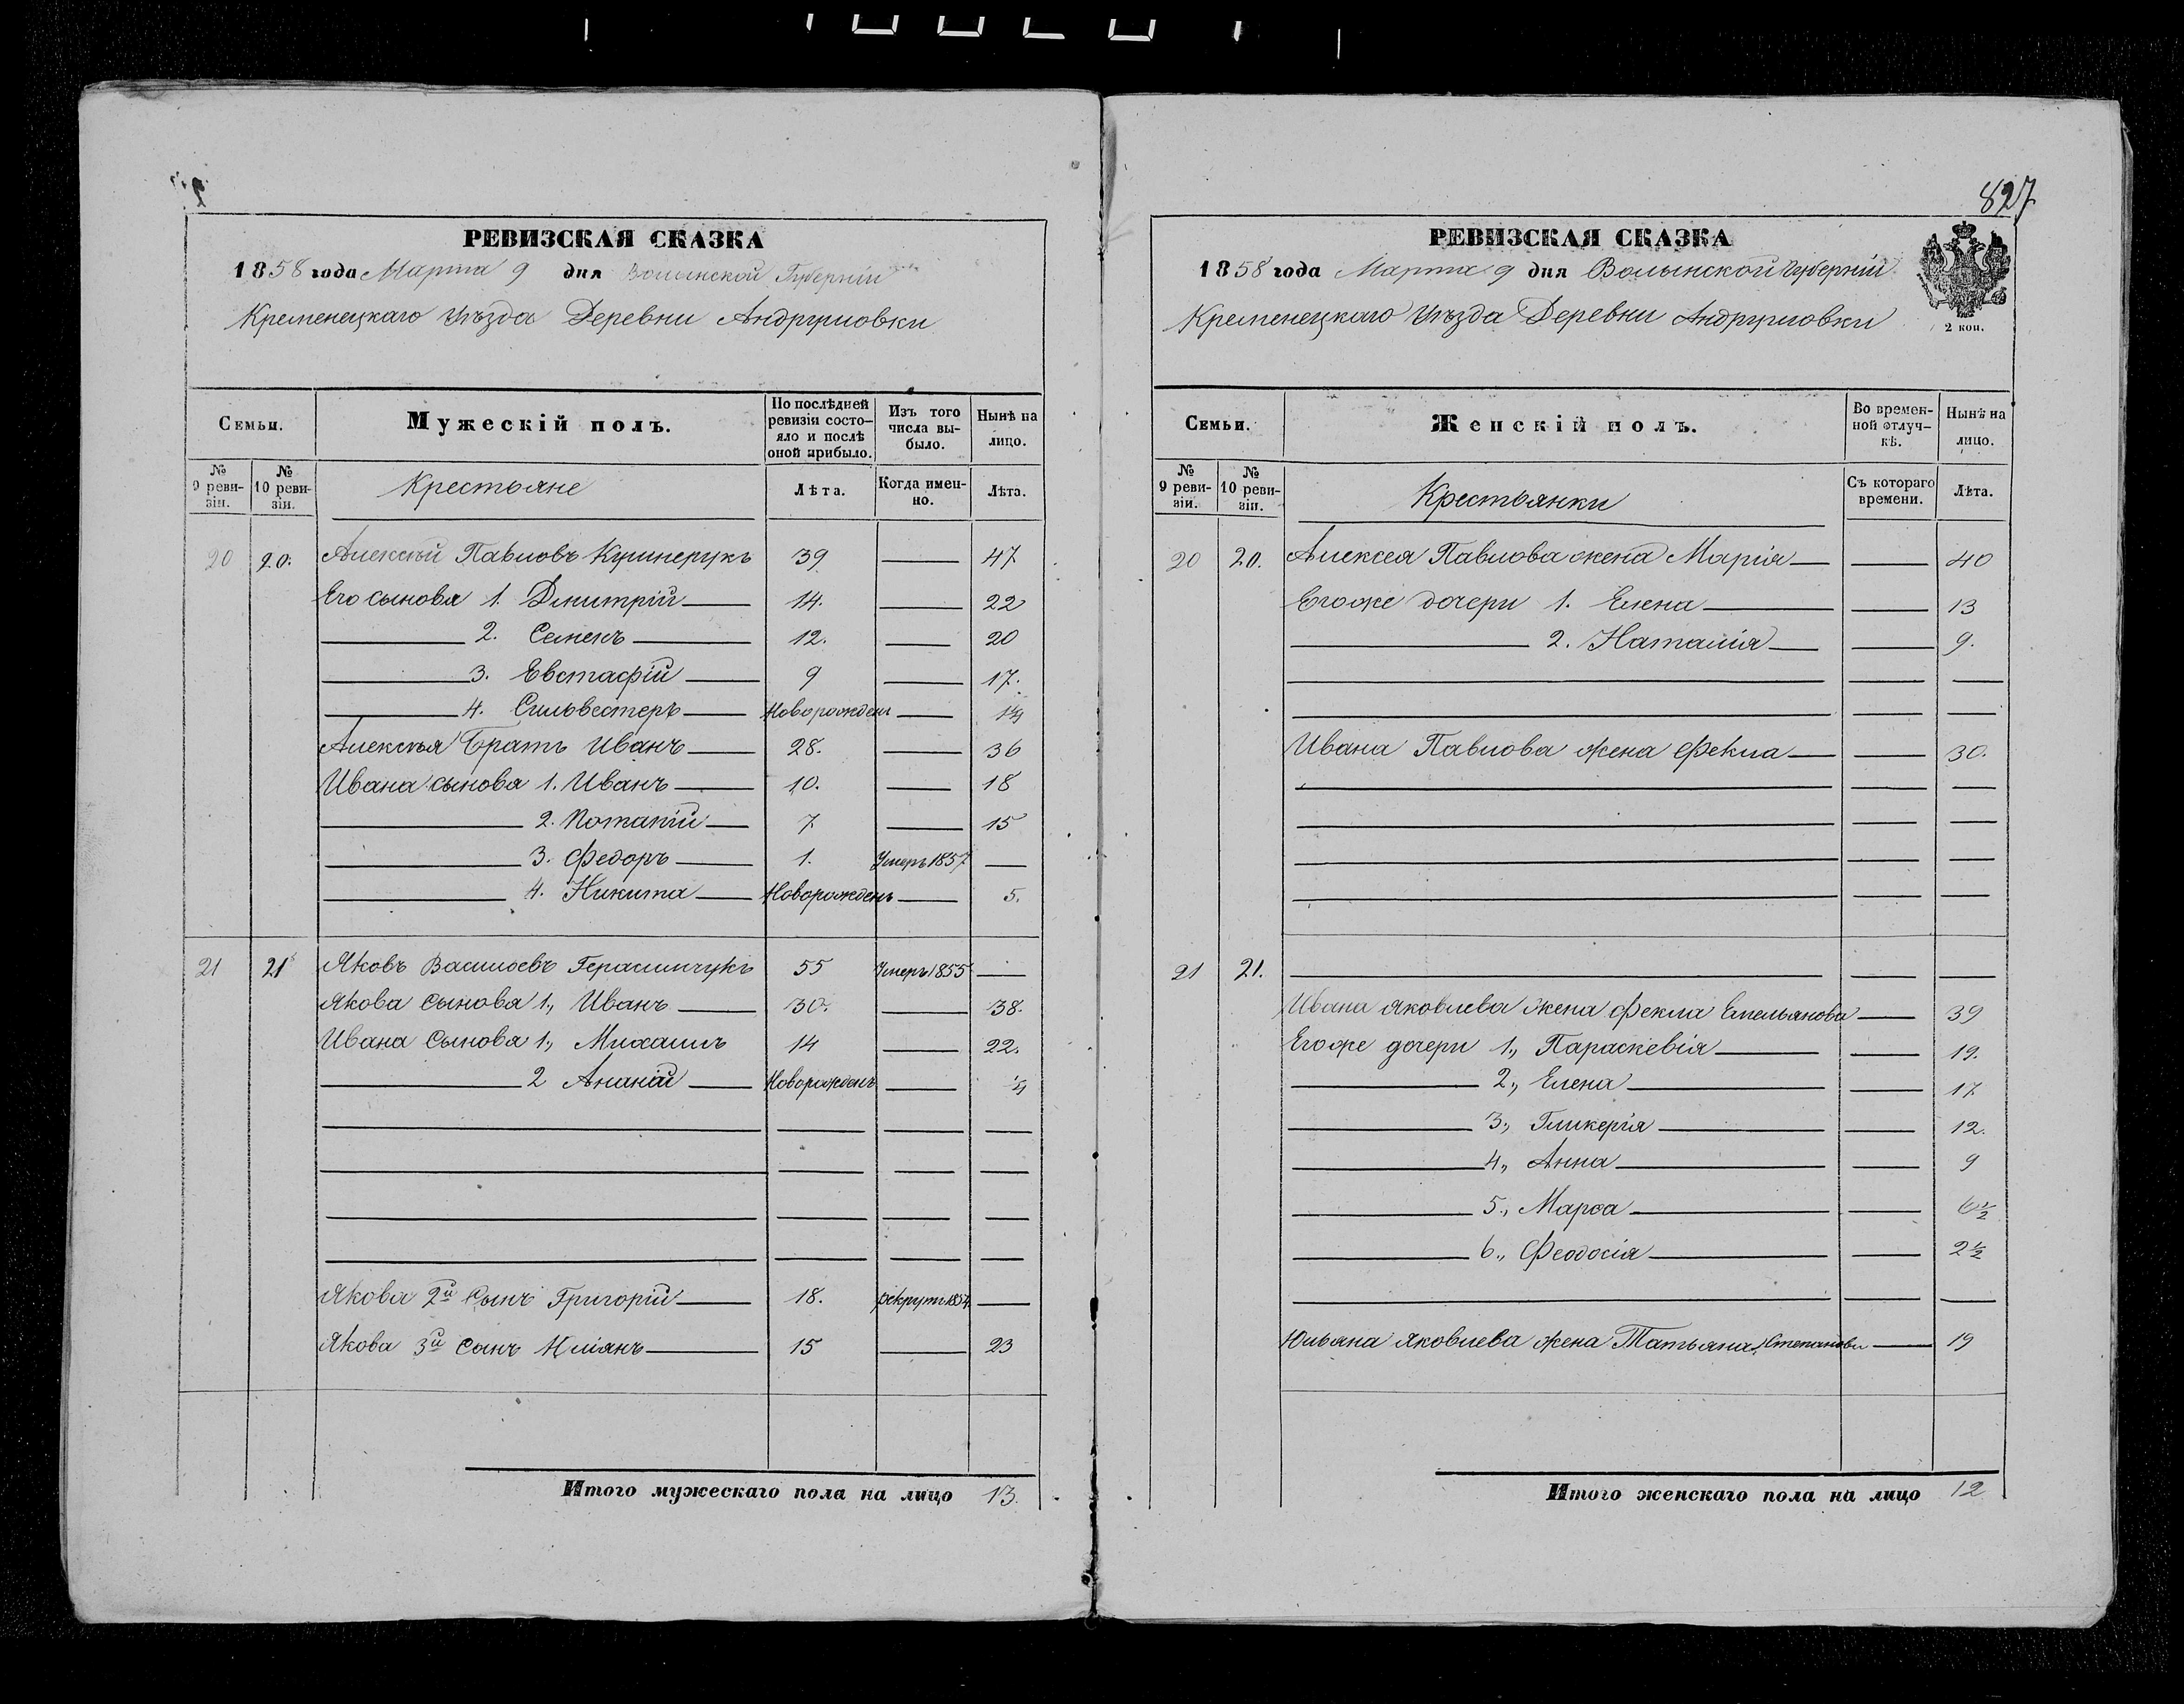 827
РЕВИЗСКАЯ СКАЗКА
1858 года Марта 9 дня Волынской Губерніи
Кременецкаго Уѣзда Деревни Андрушовки
Семьи.
Мужескій полъ.
По послѣдней ревизіи состо-
яло и послѣ
оной прибыло.
Изъ того
числа вы-
было.
Нынѣ на
лицо.
№
9 реви-
зіи.
№
10 реви-
зіи.
Крестьяне
Лѣта.
Когда имен-
но.
Лѣта.
20 20. Алексѣй Павловъ 39 47
Его сыновя 1. Дмитрій 14. 22
2. Семенъ 12. 20
3. Евстафій 9 17.
4. Сильвестеръ Новорожденъ
Алексѣя Братъ Иванъ 28. 36
Ивана сыновя 1. Иванъ 10. 18
2. Потапій 7 15
3. Федоръ 1. Умеръ 1857
4. Никита Новорожденъ 5.
21 21 Яковъ Васильевъ Герасимчукъ 55 Умеръ 1855
Якова сыновя 1., Иванъ 30. 38.
Ивана Сыновя 1., Михаилъ 14 22.
2 Ананій Новорожденъ
Якова 2й Сынъ Григорій 18. рекрутъ 1854
Якова 3й сынъ 15 23
Итого мужескаго пола на лицо 13.
РЕВИЗСКАЯ СКАЗКА
1858 года Марта 9 дня Волынской Губерніи
Кременецкаго Уѣзда Деревни Андрушовки
2 коп.
Семьи.
Женскій полъ.
Во времен-
ной отлуч-
кѣ.
Нынѣ на
лицо.
№
9 реви-
зіи.
№
10 реви-
зіи.
Крестьянки
Съ котораго
времени.
Лѣта.
20 20. Алексея Павлова жена Марія 40
Егоже дочери 1. Елена 13
2. Наталія 9.
Ивана Павлова жена Фекла 30.
21 21.
Ивана Яковлева жена Фекла Емельянова 39
Егоже дочери 1., Параскевія 19.
2., Елена 17
3., Гликерія 12.
4., Анна 9
5., Марѳа 6½
6., Феодосія 2½
Юльяна Яковлева жена Татьяна Степанова 19
Итого женскаго пола на лицо 12